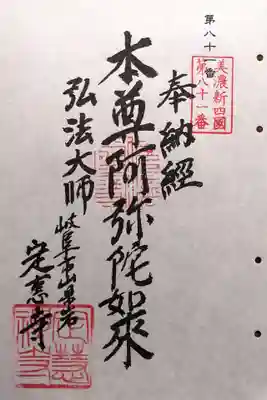 第八十一番
美濃新四國
第八十一番
奉納經
本尊阿弥陀如来
弘法大師
岐阜市山県岩
定惠寺